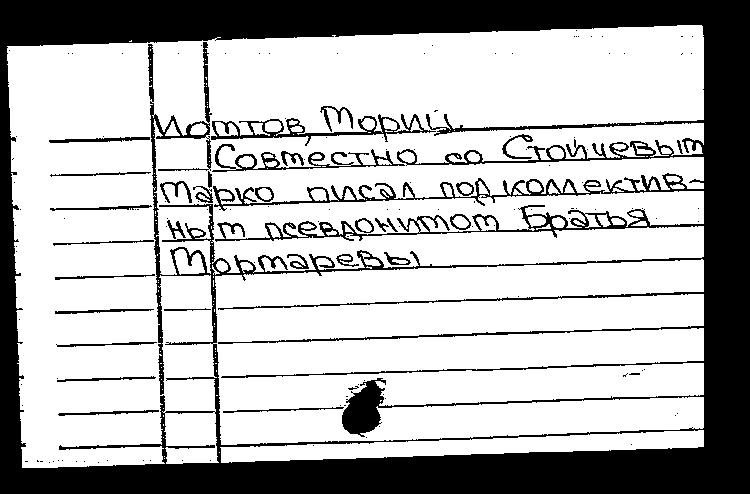 Йомтов, Мориц.
Совместно со Стойчевым
Марко писал под коллектив-
ным псевдонимом Братья
Мормаревы.